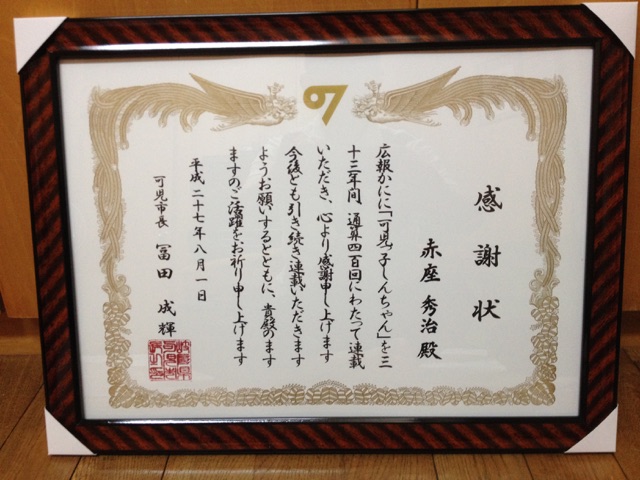 感謝状
赤座 秀治 殿
広報かにに「「可児」子しんちゃん」を三
十三年間、通算四百回にわたって連載
いただき、心より感謝申し上げます
今後とも引き続き連載いただきます
ようお願いするとともに、貴殿のます
ますのご活躍をお祈り申し上げます
平成二十七年八月一日
可児市長 冨田 成輝